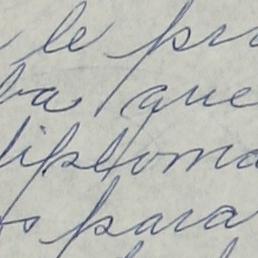 le pr
ba que
diploma
os para